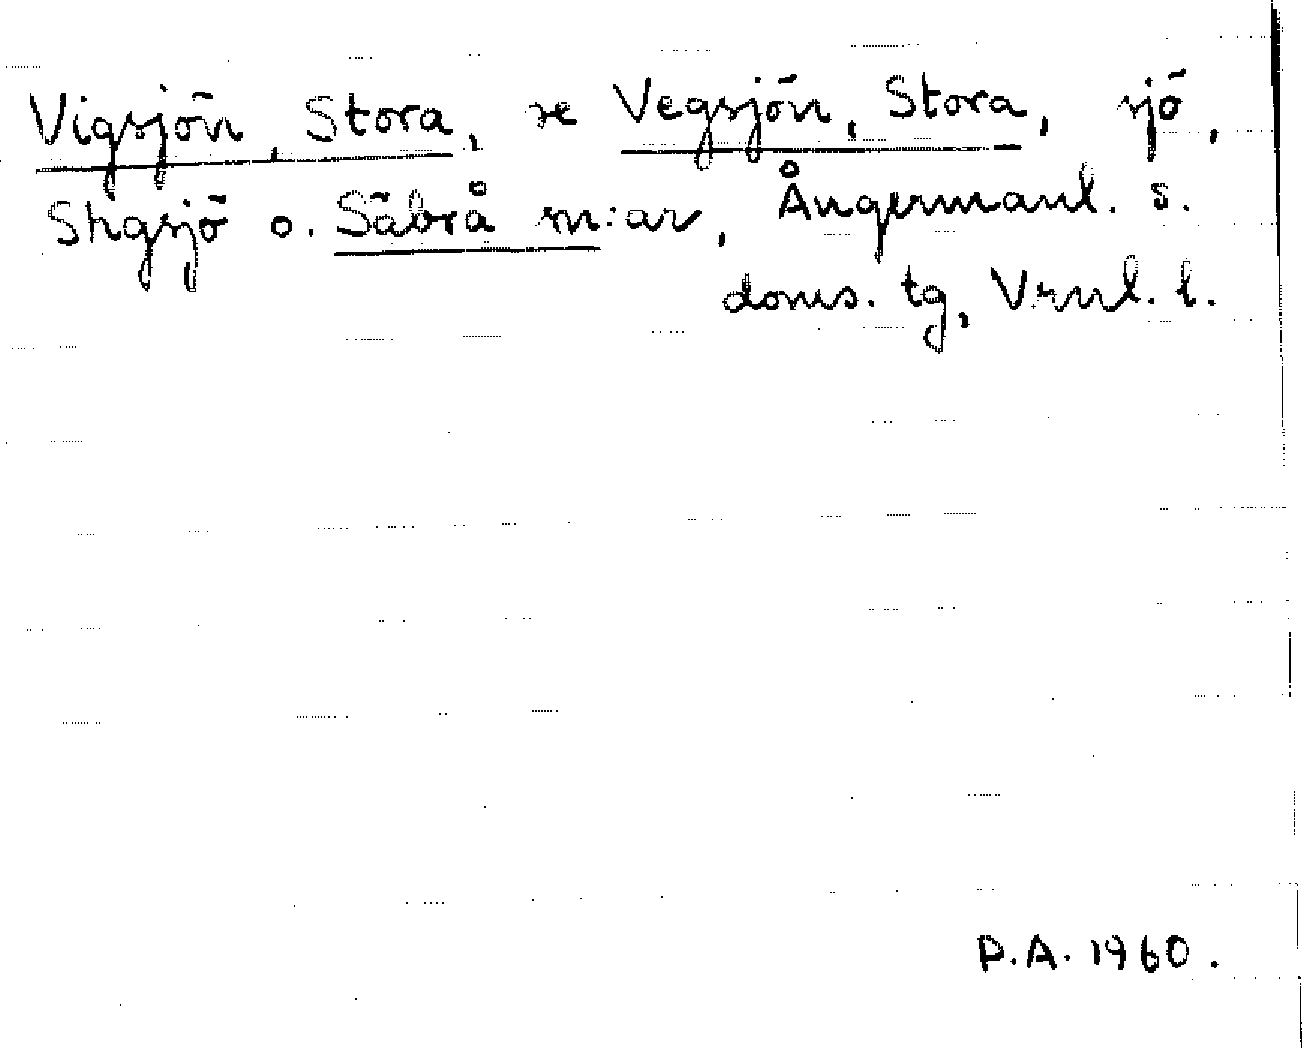 Vigsjön, Stora, se Vegsjön, Stora, sjö,
Stigsjö o. Säbrå m:ar, Ångermanl. s.
doms. tg, Vrnl. l.
P.A. 1960.